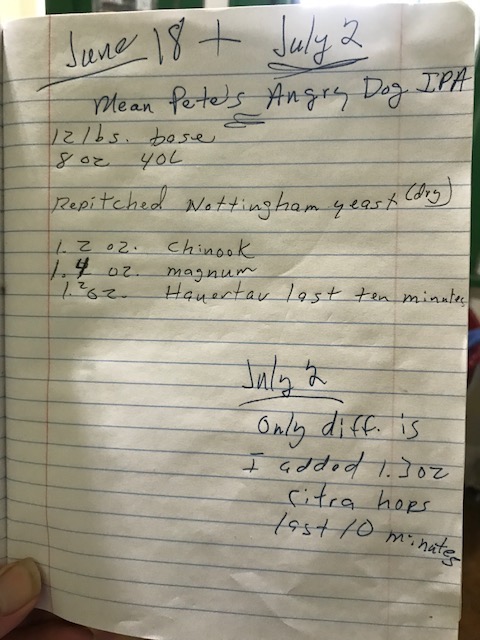 June 18 + July 2
Mean Pete's Angry Dog IPA
12 lbs. base
8 oz 40L
Repitched Nottingham yeast (dry)
1.2 oz. Chinook
1.4 oz. magnum
1.2 oz. Hauertau last ten minutes
July 2
Only diff. is
I added 1.3oz
Citra hops
last 10 minutes